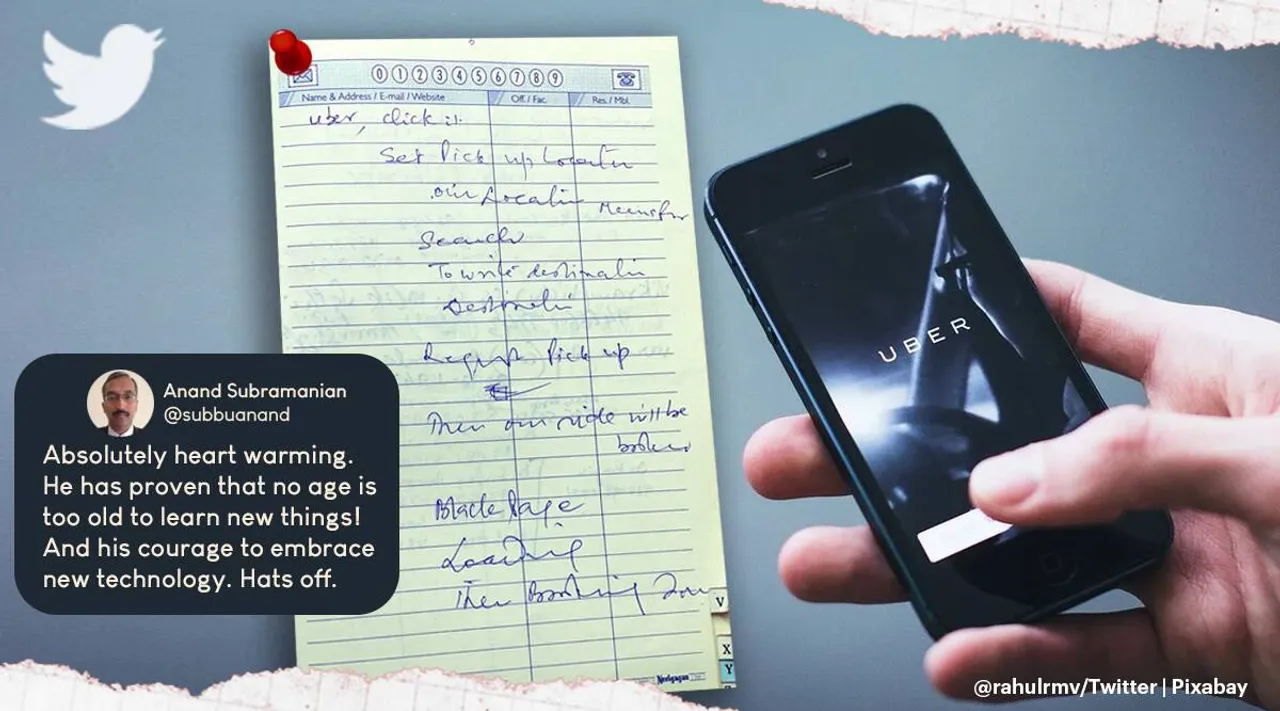 0 1 2 3 4 5 6 7 8 9
Name & Address / E-mail / Website Off / Fac. Res / Mbl.
uber, click it
Set Pick up Locatn
our Locatin
Search
To write destinatin
Destinatin
Request Pick up
Then our ride will be
booked
Black Page
Loading
Then Booking
V
X
Y
Neelgagan
UBER
Anand Subramanian
@subbuanand
Absolutely heart warming.
He has proven that no age is
too old to learn new things!
And his courage to embrace
new technology. Hats off.
@rahulrmv/Twitter | Pixabay